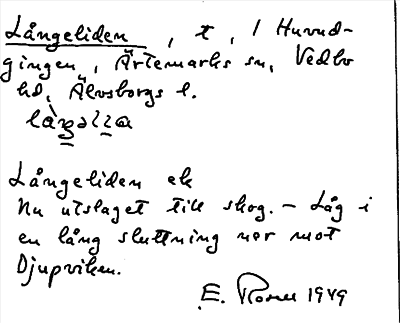 Långeliden, t, / Huvud-
gingen, Ärtemarks sn, Vedbo
hd, Älvsborgs l.
Långeliden ek
Nu utslaget till skog. – Låg i
en lång sluttning ner mot
Djupviken.
E. Rosell 1949